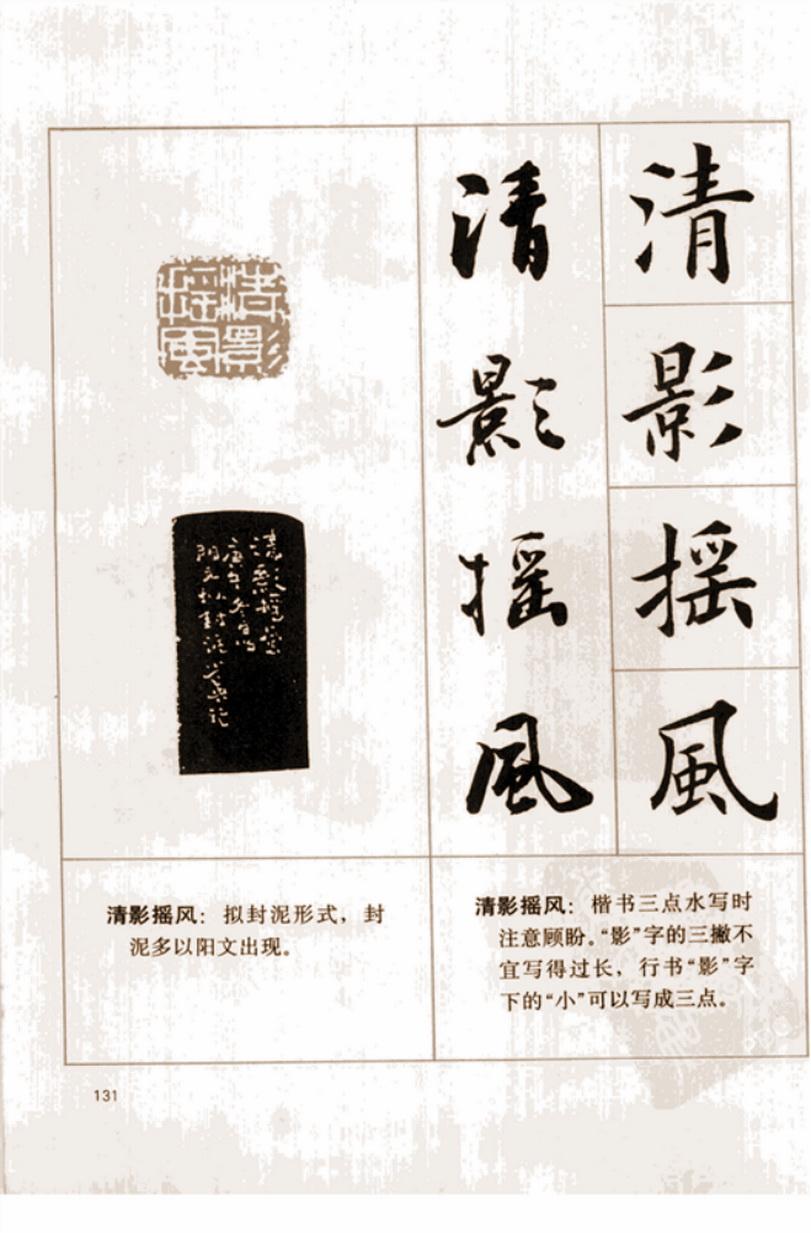 清
影
摇
風
清
影
摇
風
清影摇風
清影摇风：拟封泥形式，封
泥多以阳文出现。
清影摇风：楷书三点水写时
注意顾盼。“影”字的三撇不
宜写得过长，行书“影”字
下的“小”可以写成三点。
131